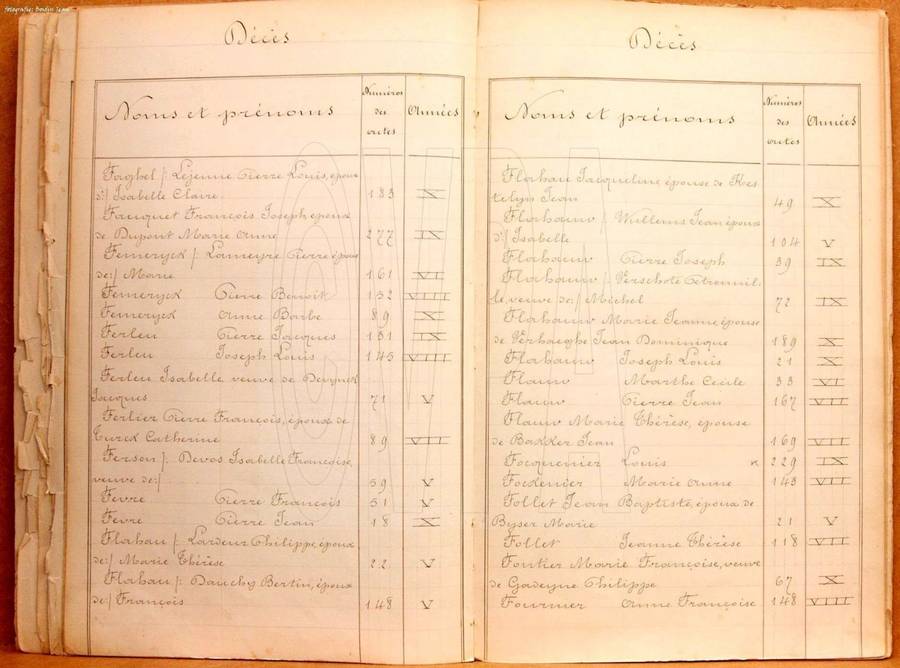 Fotografie: Boudin Team
Décès
Noms et prénoms
Numéros des actes
Années
Faghel /: Lejeune Pierre Louis, époux
d:/ Isabelle Claire 133 X
Fauquet François Joseph époux
de Dupont Marie Anne 277 IX
Femeryck /: Lameyre Pierre époux
de:/ Marie 161 VI
Femeryck Pierre Benoit 132 VIII
Femeryck Anne Barbe 89 X
Ferleu Pierre Jacques 131 IX
Ferleu Joseph Louis 143 VIII
Ferleu Isabelle veuve de Devynck
Jacques 71 V
Ferlier Pierre François, époux de
Turck Catherine 89 VII
Ferson /: Devos Isabelle Françoise,
veuve de:/ 59 V
Fevre Pierre François 51 V
Fevre Pierre Jean 18 X
Flahau /: Lardeur Philippe, époux
de:/ Marie Thérèse 22 V
Flahau /: Dauchy Bertin, époux
de:/ François 148 V
Décès
Noms et prénoms
Numéros des actes
Années
Flahau Jacqueline épouse de Kes
telyn Jean 49 X
Flahauw /: Wullems Jean époux
d:/ Isabelle 104 V
Flahauw Pierre Joseph 39 IX
Flahauw /: Verschote Pétronil.
le, veuve de:/ Michel 72 IX
Flahauw Marie Jeanne, épouse
de Verhaeghe Jean Dominique 189 X
Flahauw Joseph Louis 21 X
Flauw Marthe Cécile 33 VI
Flauw Pierre Jean 167 VII
Flauw Marie Thérèse, épouse
de Bakker Jean 169 VII
Focquenier Louis 229 IX
Fockenier Marie Anne 143 VII
Follet Jean Baptiste, époux de
Byser Marie 21 V
Follet Jeanne Thérèse 118 VII
Fontier Marie Françoise, veuve
de Gadeyne Philippe 67 X
Fournier Anne Françoise 148 VIII